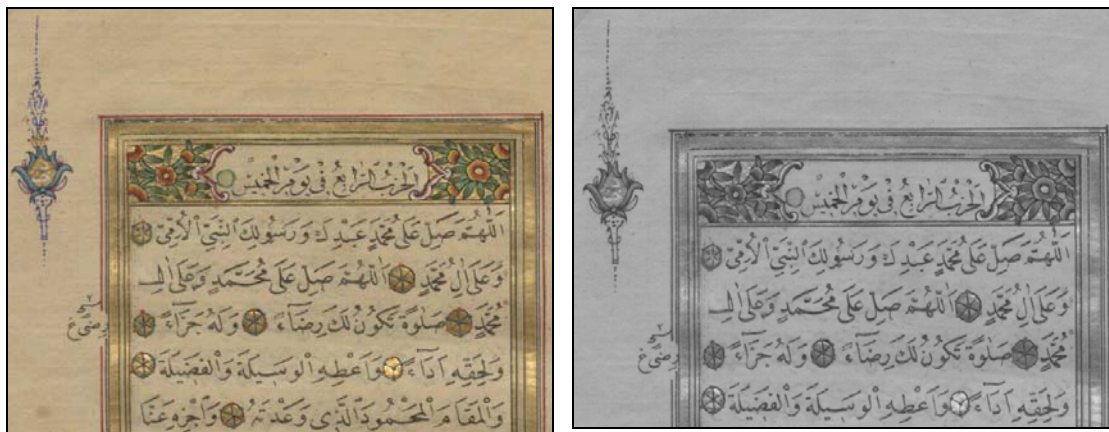 اَلْحِزْبُ الرَّابِعُ فِي يَوْمِ الْخَمِيْسِ
اَللّٰهُمَّ صَلِّ عَلٰى مُحَمَّدٍ عَبْدِكَ وَرَسُولِكَ النَّبِيِّ الْأُمِّيِّ
وَعَلٰى اٰلِ مُحَمَّدٍ اَللّٰهُمَّ صَلِّ عَلٰى مُحَمَّدٍ وَعَلٰى اٰلِ
مُحَمَّدٍ صَلٰوةً تَكُونُ لَكَ رِضَاءً وَلَهُ جَزَاءً
وَلِحَقِّهِ اَدَاءً وَاَعْطِهِ الْوَسِيلَةَ وَالْفَضِيلَةَ
وَالْمَقَامَ الْمَحْمُودَ الَّذِي وَعَدْتَهُ وَاَجْزِهِ عَنَّا
اَلْحِزْبُ الرَّابِعُ فِي يَوْمِ الْخَمِيْسِ
اَللّٰهُمَّ صَلِّ عَلٰى مُحَمَّدٍ عَبْدِكَ وَرَسُولِكَ النَّبِيِّ الْأُمِّيِّ
وَعَلٰى اٰلِ مُحَمَّدٍ اَللّٰهُمَّ صَلِّ عَلٰى مُحَمَّدٍ وَعَلٰى اٰلِ
مُحَمَّدٍ صَلٰوةً تَكُونُ لَكَ رِضَاءً وَلَهُ جَزَاءً
وَلِحَقِّهِ اَدَاءً وَاَعْطِهِ الْوَسِيلَةَ وَالْفَضِيلَةَ